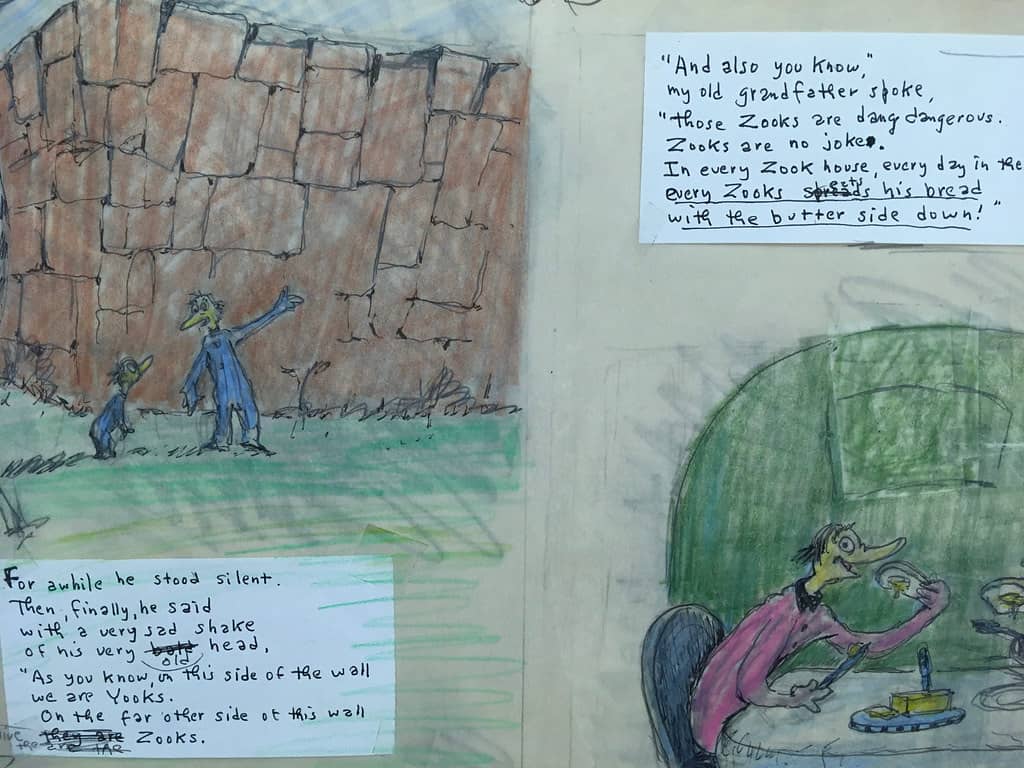 For awhile he stood silent.
Then, finally, he said
with a very sad shake
of his very old head,
"As you know, on this side of the wall
we are Yooks.
On the far other side of this wall
live the Zooks.
"And also you know,"
my old grandfather spoke,
"those Zooks are dang dangerous.
Zooks are no joke.
In every Zook house, every day in the
every Zooks ests his bread
with the butter side down!"